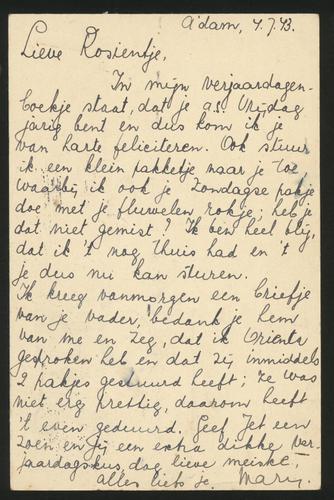 A'dam, 4.7.43.
Lieve Rosientje,
In mijn verjaardagen-
boekje staat, dat je a.s. Vrijdag
jarig bent en dus kom ik je
van harte feliciteren. Ook stuur
ik een klein pakketje naar je toe
waarbij ik ook je Zondagse pakje
doe met je fluwelen rokje; heb je
dat niet gemist? Ik ben heel blij,
dat ik 't nog thuis had en 't
je dus nu kan sturen.
Ik kreeg vanmorgen een briefje
van je vader, bedank je hem
van me en zeg, dat ik
gesproken heb en dat zij inmiddels
2 pakjes gestuurd heeft; ze was
niet erg prettig, daarom heeft
't even geduurd. Geef Jet een
zoen en jij een extra dikke ver-
jaardagskus, dag lieve meiske,
alles liefs je. Mary.